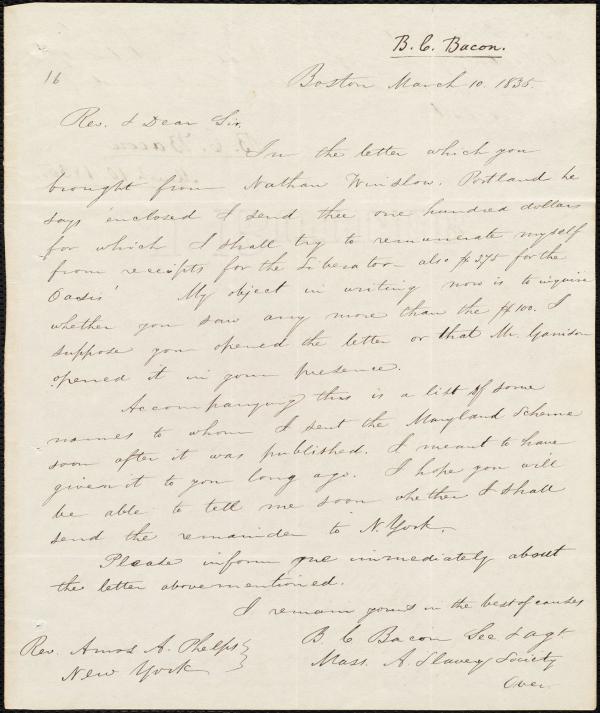 B. C. Bacon.
16
Boston March 10. 1835.
Rev. & Dear Sir,
In the letter which you
brought from Nathan Winslow. Portland he
says 'enclosed I send thee one hundred dollars
for which I shall try to remunerate myself
from receipts for the Liberator also $3.75 for the
Oasis' My object in writing now is to inquire
whether you saw any more than the $100. I
suppose you opened the letter or that Mr. Garrison
opened it in your presence.
Accompanying this is a list of some
names to whom I sent the Maryland Scheme
soon after it was published. I meant to have
given it to you long ago. I hope you will
be able to tell me soon whether I shall
send the remainder to N. York.
Please inform me immediately about
the letter abovementioned.
I remain yours in the best of causes
B C Bacon Sec & agt
Mass. A. Slavery Society
Rev. Amos A. Phelps
New York
Over.